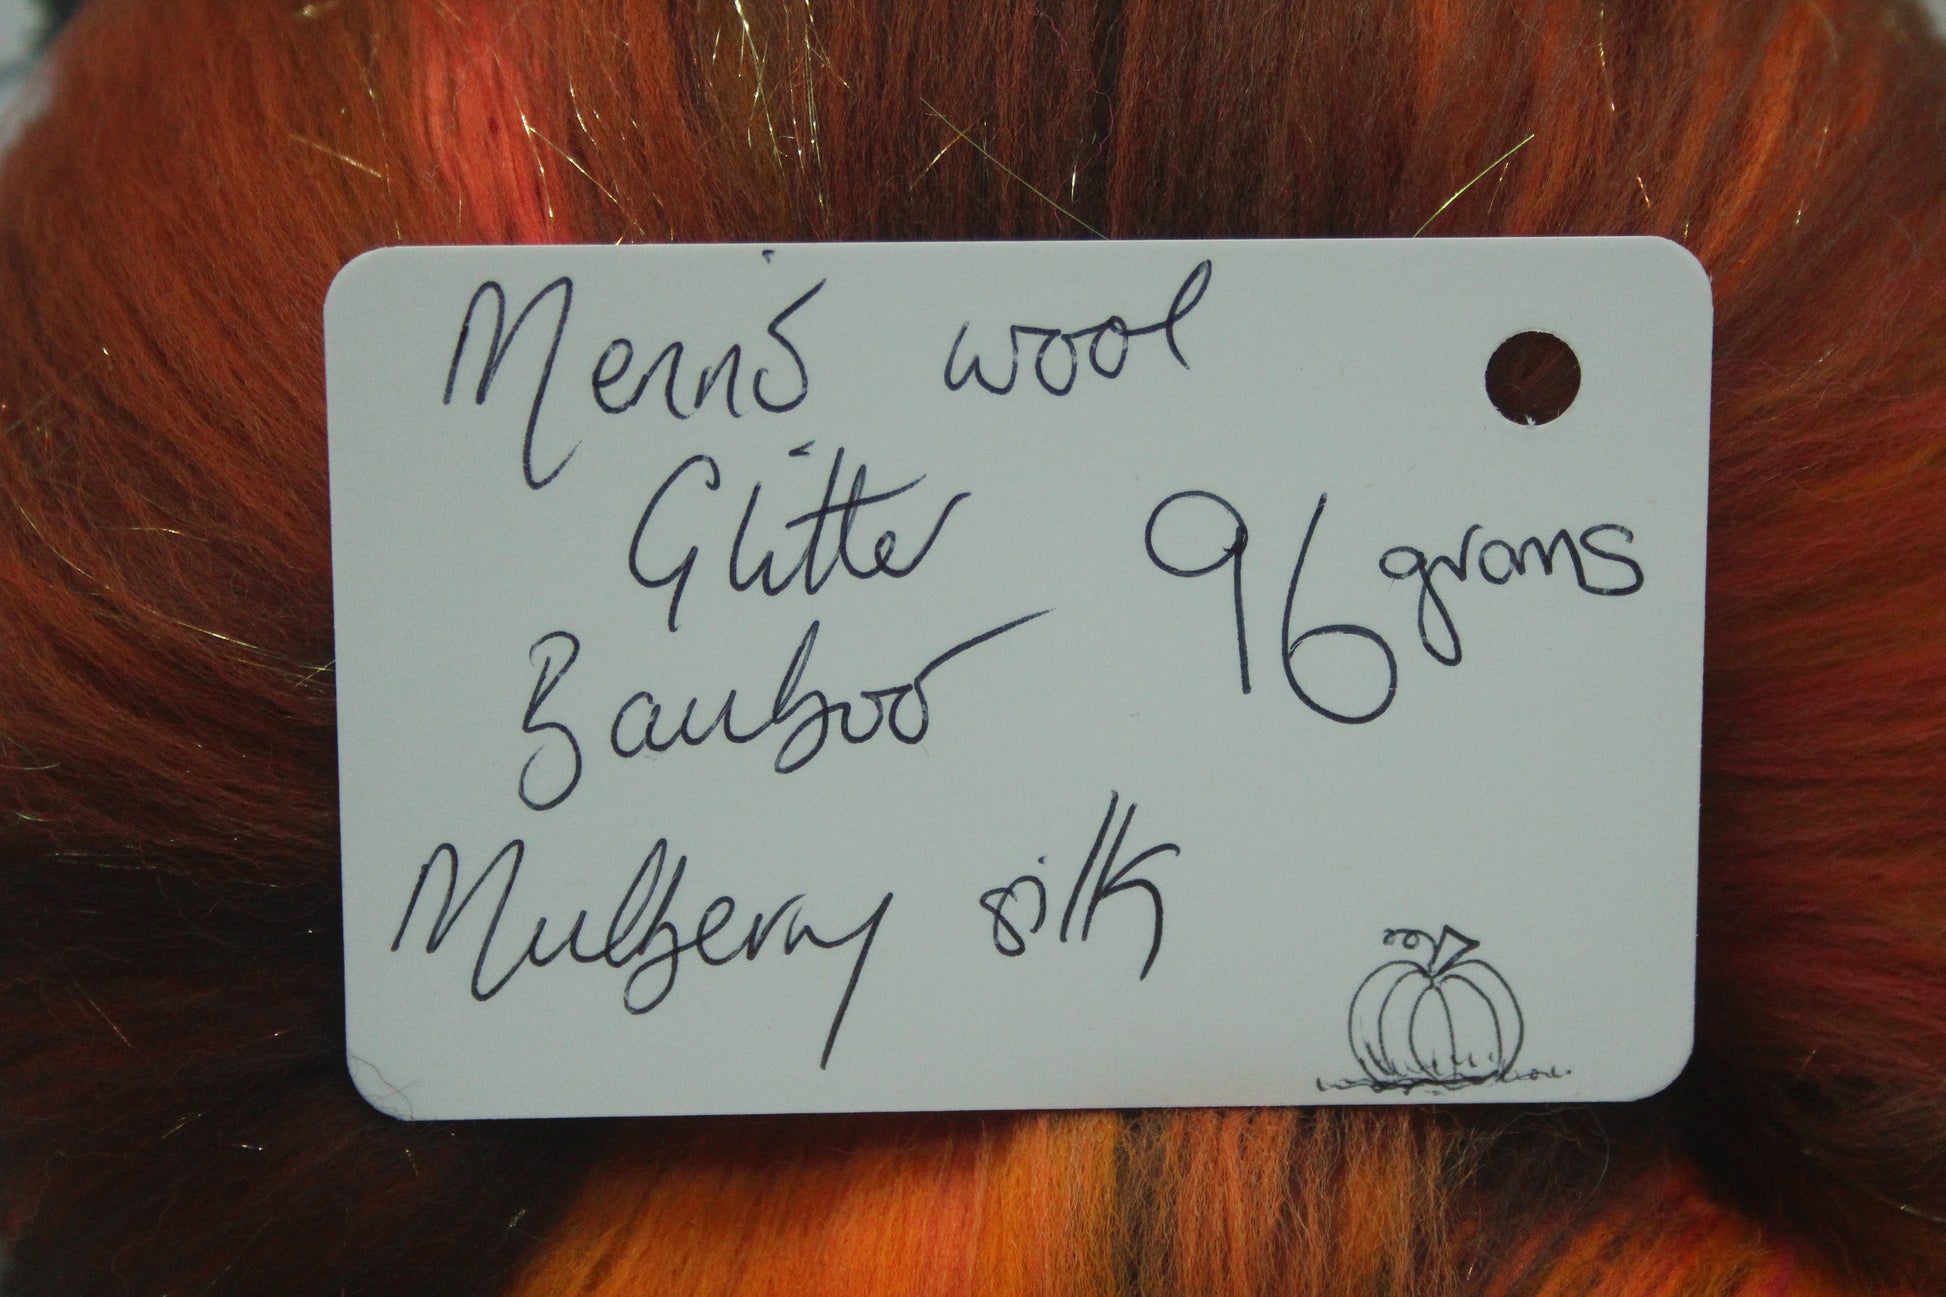 Merino wool
Glitter
96 grams
Bamboo
Mulberry silk